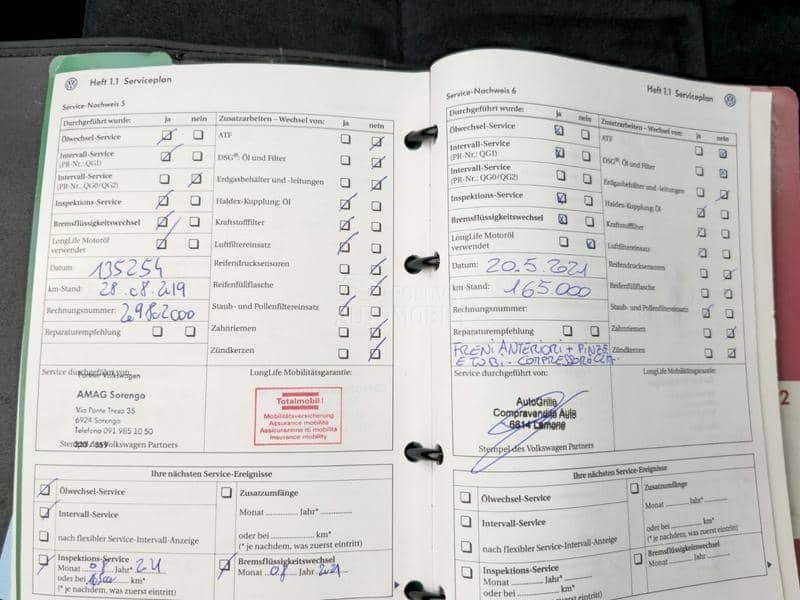 Heft 1.1 Serviceplan
Service-Nachweis 5
Durchgeführt wurde: ja nein
Ölwechsel-Service
Intervall-Service
(PR-Nr.: QG1)
Intervall-Service
(PR-Nr.: QG0/QG2)
Inspektions-Service
Bremsflüssigkeitswechsel
LongLife Motoröl
verwendet
Datum: 135254
km-Stand: 28.08.2019
Rechnungsnummer:
Reparaturempfehlung
Zusatzarbeiten – Wechsel von: ja nein
ATF
DSG®: Öl und Filter
Erdgasbehälter und -leitungen
Haldex-Kupplung: Öl
Kraftstofffilter
Luftfiltereinsatz
Reifendrucksensoren
Reifenfüllflasche
Staub- und Pollenfiltereinsatz
Zahnriemen
Zündkerzen
Service durchgeführt von:
AMAG Sorengo
Via Ponte Tresa 35
6924 Sorengo
Telefono 091 985 10 50
Stempel des Volkswagen Partners
LongLife Mobilitätsgarantie:
Totalmobil!
Mobilitätsversicherung
Assurance mobilité
Assicurazione di mobilità
Insurance mobility
Ihre nächsten Service-Ereignisse
Ölwechsel-Service
Intervall-Service
nach flexibler Service-Intervall-Anzeige
Inspektions-Service
Monat 08 Jahr* 21
oder bei km*
(* je nachdem, was zuerst eintritt)
Zusatzumfänge
Monat Jahr*
oder bei km*
(* je nachdem, was zuerst eintritt)
Bremsflüssigkeitswechsel
Monat 08 Jahr 2021
Heft 1.1 Serviceplan
Service-Nachweis 6
Durchgeführt wurde: ja nein
Ölwechsel-Service
Intervall-Service
(PR-Nr.: QG1)
Intervall-Service
(PR-Nr.: QG0/QG2)
Inspektions-Service
Bremsflüssigkeitswechsel
LongLife Motoröl
verwendet
Datum: 20.5.2021
km-Stand: 165.000
Rechnungsnummer:
Reparaturempfehlung
FRENI ANTERIORI + PINZE
E TUBI - COMPRESSORE
Zusatzarbeiten – Wechsel von: ja nein
ATF
DSG®: Öl und Filter
Erdgasbehälter und -leitungen
Haldex-Kupplung: Öl
Kraftstofffilter
Luftfiltereinsatz
Reifendrucksensoren
Reifenfüllflasche
Staub- und Pollenfiltereinsatz
Zahnriemen
Zündkerzen
Service durchgeführt von:
Compravendita Auto
6814 Lamone
Stempel des Volkswagen Partners
LongLife Mobilitätsgarantie:
Ihre nächsten Service-Ereignisse
Ölwechsel-Service
Intervall-Service
nach flexibler Service-Intervall-Anzeige
Inspektions-Service
Monat Jahr*
oder bei km*
(* je nachdem, was zuerst eintritt)
Zusatzumfänge
Monat Jahr*
oder bei km*
(* je nachdem, was zuerst eintritt)
Bremsflüssigkeitswechsel
Monat Jahr
2